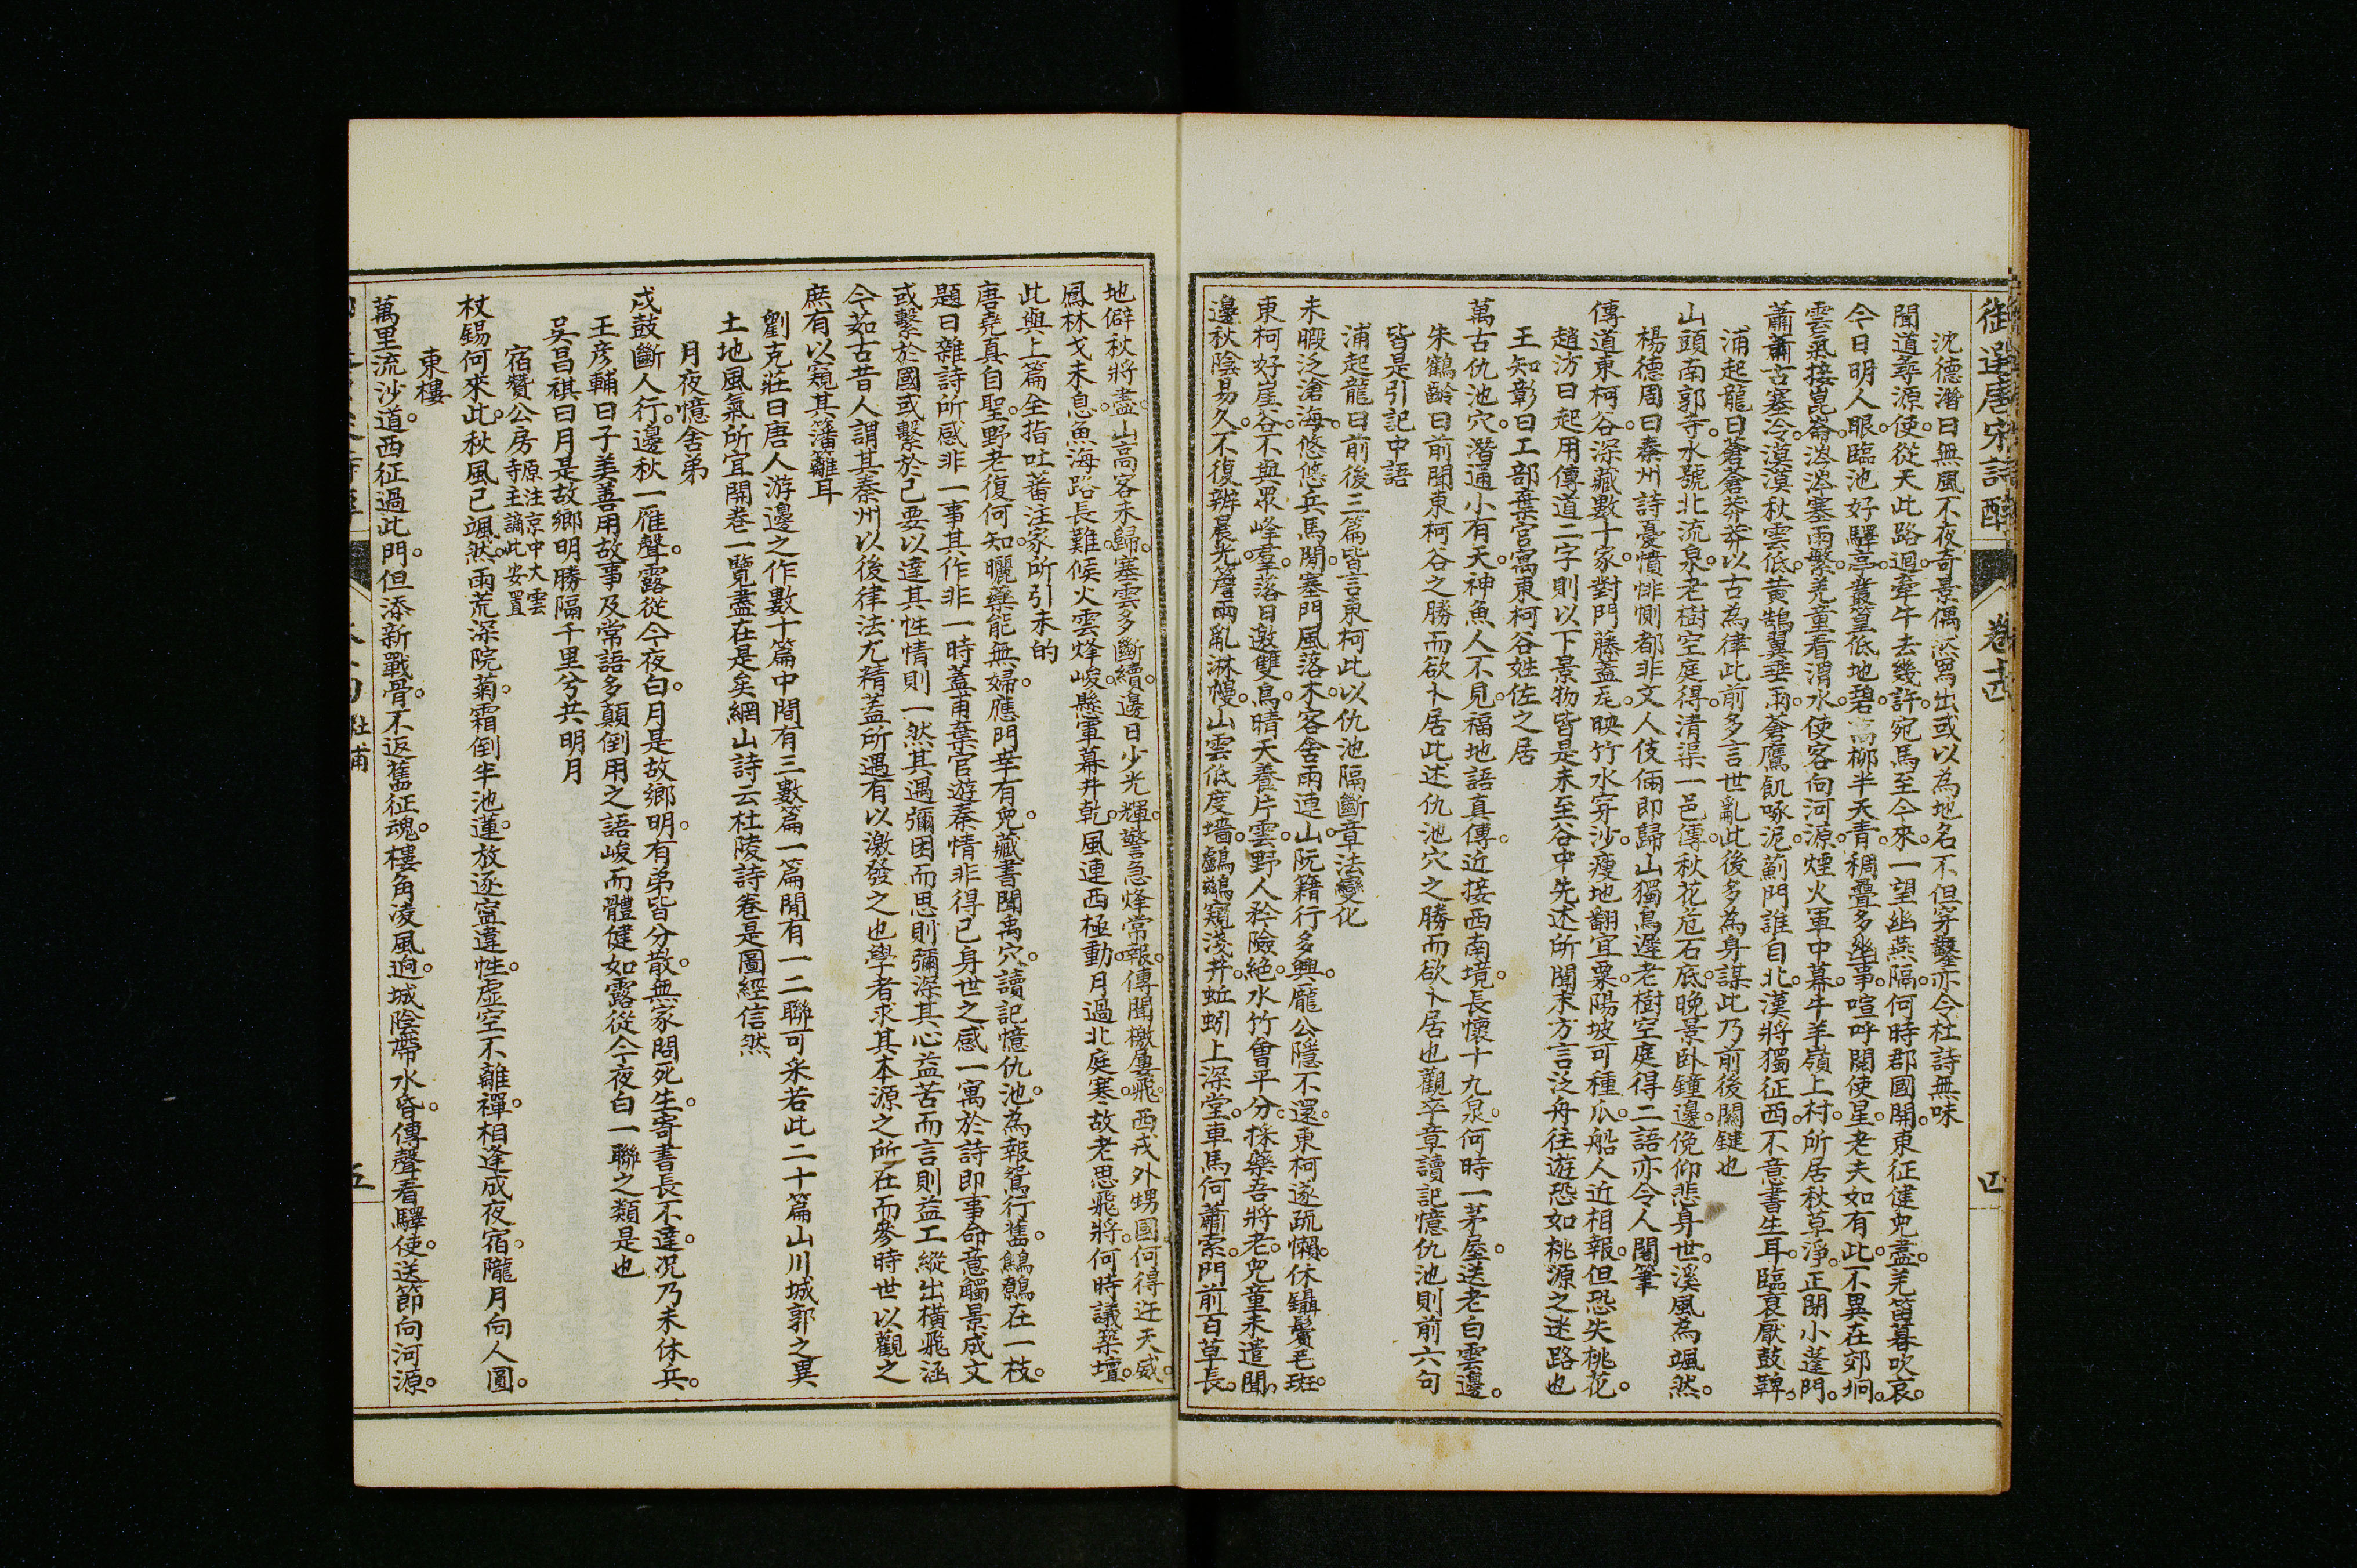 御選唐宋詩醇
卷十四
四
沈德潛曰無風不夜奇景偶然寫出或以為地名不但穿鑿亦令杜詩無味
聞道尋源使從天此路迴牽牛去幾許宛馬至今來一望幽燕隔何時郡國開東征健兒盡羌笛暮吹哀
今日明人眼臨池好驛亭叢篁低地碧高柳半天青稠疊多幽事喧呼閱使星老夫如有此不異在郊坰
雲氣接崑崙涔涔塞雨繁羌童看渭水使客向河源煙火軍中幕牛羊嶺上村所居秋草淨正閉小蓬門
蕭蕭古塞冷漠漠秋雲低黃鵠翼垂雨蒼鷹飢啄泥薊門誰自北漢將獨征西不意書生耳臨衰厭鼓鞞
浦起龍曰蒼蒼莽莽以古為律此前多言世亂此後多為身謀此乃前後關鍵也
山頭南郭寺水號北流泉老樹空庭得清渠一邑傳秋花危石底晚景卧鐘邊俛仰悲身世溪風為颯然
楊德周曰秦州詩憂憤悱惻都非文人伎倆即歸山獨鳥遲老樹空庭得二語亦令人閣筆
傳道東柯谷深藏數十家對門藤蓋瓦映竹水穿沙瘦地翻宜粟陽坡可種瓜船人近相報但恐失桃花
趙汸曰起用傳道二字則以下景物皆是未至谷中先述所聞末方言泛舟往遊恐如桃源之迷路也
王知彰曰工部棄官寓東柯谷姪佐之居
萬古仇池穴潛通小有天神魚人不見福地語真傳近接西南境長懷十九泉何時一茅屋送老白雲邊
朱鶴齡曰前聞東柯谷之勝而欲卜居此述仇池穴之勝而欲卜居也觀卒章讀記憶仇池則前六句
皆是引記中語
浦起龍曰前後三篇皆言東柯此以仇池隔斷章法變化
未暇泛滄海悠悠兵馬間塞門風落木客舍雨連山阮籍行多興龐公隱不還東柯遂疏懶休鑷鬢毛斑
東柯好崖谷不與眾峰羣落日邀雙鳥晴天養片雲野人矜險絕水竹會平分採藥吾將老兒童未遣聞
邊秋陰易久不復辨晨光簷雨亂淋幔山雲低度墻鸕鶿窺淺井蚯蚓上深堂車馬何蕭索門前百草長
地僻秋將盡山高客未歸塞雲多斷續邊日少光輝警急烽常報傳聞檄屢飛西戎外甥國何得迕天威
鳳林戈未息魚海路長難候火雲烽峻懸軍幕井乾風連西極動月過北庭寒故老思飛將何時議築壇
此與上篇全指吐蕃注家所引未的
唐堯真自聖野老復何知曬藥能無婦應門幸有兒藏書聞禹穴讀記憶仇池為報鴛行舊鷦鷯在一枝
題曰雜詩所感非一事其作非一時蓋甫棄官遊秦情非得已身世之感一寓於詩即事命意觸景成文
或繫於國或繫於己要以達其性情則一然其遇彌困而思則彌深其心益苦而言則益工縱出橫飛涵
今茹古昔人謂其秦州以後律法尤精蓋所遇有以激發之也學者求其本源之所在而參時世以觀之
庶有以窺其籓籬耳
劉克莊曰唐人游邊之作數十篇中間有三數篇一篇間有一二聯可采若此二十篇山川城郭之異
土地風氣所宜開卷一覽盡在是矣網山詩云杜陵詩卷是圖經信然
月夜憶舍弟
戍鼓斷人行邊秋一雁聲露從今夜白月是故鄉明有弟皆分散無家問死生寄書長不達況乃未休兵
王彥輔曰子美善用故事及常語多顛倒用之語峻而體健如露從今夜白一聯之類是也
吳昌祺曰月是故鄉明勝隔千里兮共明月
宿贊公房原注京中大雲寺主謫此安置
杖錫何來此秋風已颯然雨荒深院菊霜倒半池蓮放逐寧違性虛空不離禪相逢成夜宿隴月向人圓
東樓
萬里流沙道西征過此門但添新戰骨不返舊征魂樓角凌風迥城陰帶水昏傳聲看驛使送節向河源
杜甫
五